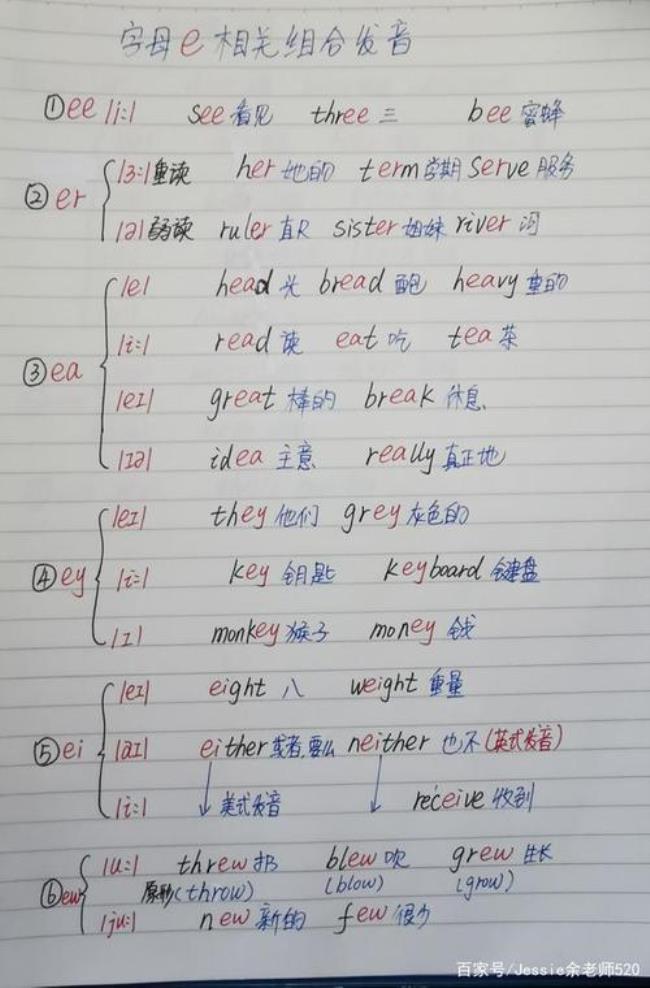 字母e相关组合发音
①ee /i:/ see 看见 three 三 bee 蜜蜂
②er /ɜ:/重读 her 她的 term 学期 serve 服务
/ə/弱读 ruler 直尺 sister 姐妹 river 河
/e/ head 头 bread 面包 heavy 重的
③ea /i:/ read 读 eat 吃 tea 茶
/eɪ/ great 棒的 break 休息
/ɪə/ idea 主意 really 真正地
/eɪ/ they 他们 grey 灰色的
④ey /i:/ key 钥匙 keyboard 键盘
/ɪ/ monkey 猴子 money 钱
/eɪ/ eight 八 weight 重量
⑤ei /aɪ/ either 或者,要么 neither 也不(英式发音)
/i:/ ↓美式发音 ↓ receive 收到
⑥ew /u:/ threw 扔 blew 吹 grew 生长
原形(throw) (blow) (grow)
/ju:/ new 新的 few 很少
百家号/Jessie余老师520